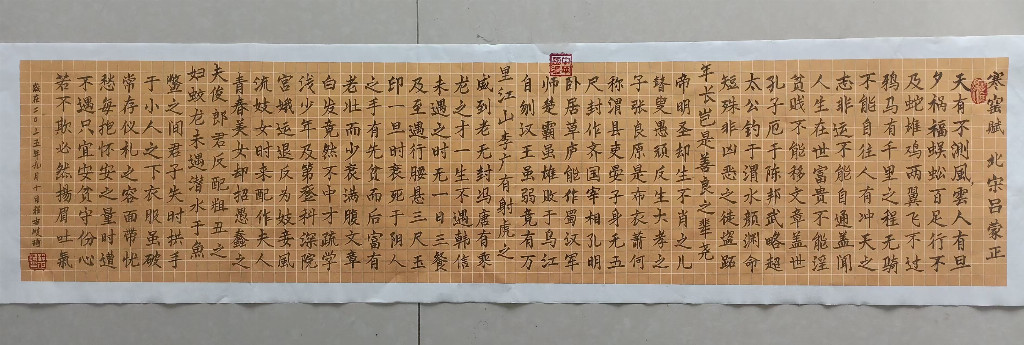 寒窑赋 北宋吕蒙正
天有不测風雲人有旦
夕禍福蜈蚣百足行不
及蛇雄鸡两翼飞不过
鸦马有千里之程无骑
不能自往人有冲天之
志非运不能自通盖闻
人生在世富贵不能淫
贫贱不能移文章盖世
孔子厄于陈邦武略超
太公钓于渭水颜渊命
短殊非凶恶之徒盗跖
年长岂是善良之辈尧
帝明圣却生不肖之儿
瞽叟愚顽反生大孝之
子张良原是布衣萧何
称渭县吏晏子身无五
尺封作齐国宰相孔明
卧居草庐能作蜀汉军
师楚霸虽雄败于乌江
自刎汉王虽弱竟有万
里江山李广有射虎之
威到老无封冯唐有乘
龙之才一生不遇韩信
未遇之时无一日三餐
及至遇行腰悬三尺玉
印一旦时衰死于阴人
之手有先贫而后富有
老壮而少衰满腹文章
白发竟然不中才疏学
浅少年及第登科深院
宫娥运退反为妓妾風
流妓女时来配作夫人
青春美女却招愚蠢之
夫俊郎君反配粗丑之
妇蛟龙未遇潜水于魚
鳖之间君子失时拱手
于小人之下衣服虽破
常存仪礼之容面带忧
愁每抱怀安之量时遭
不遇只宜安贫守份心
若不欺必然揚眉吐氣
二〇二五年九月十日